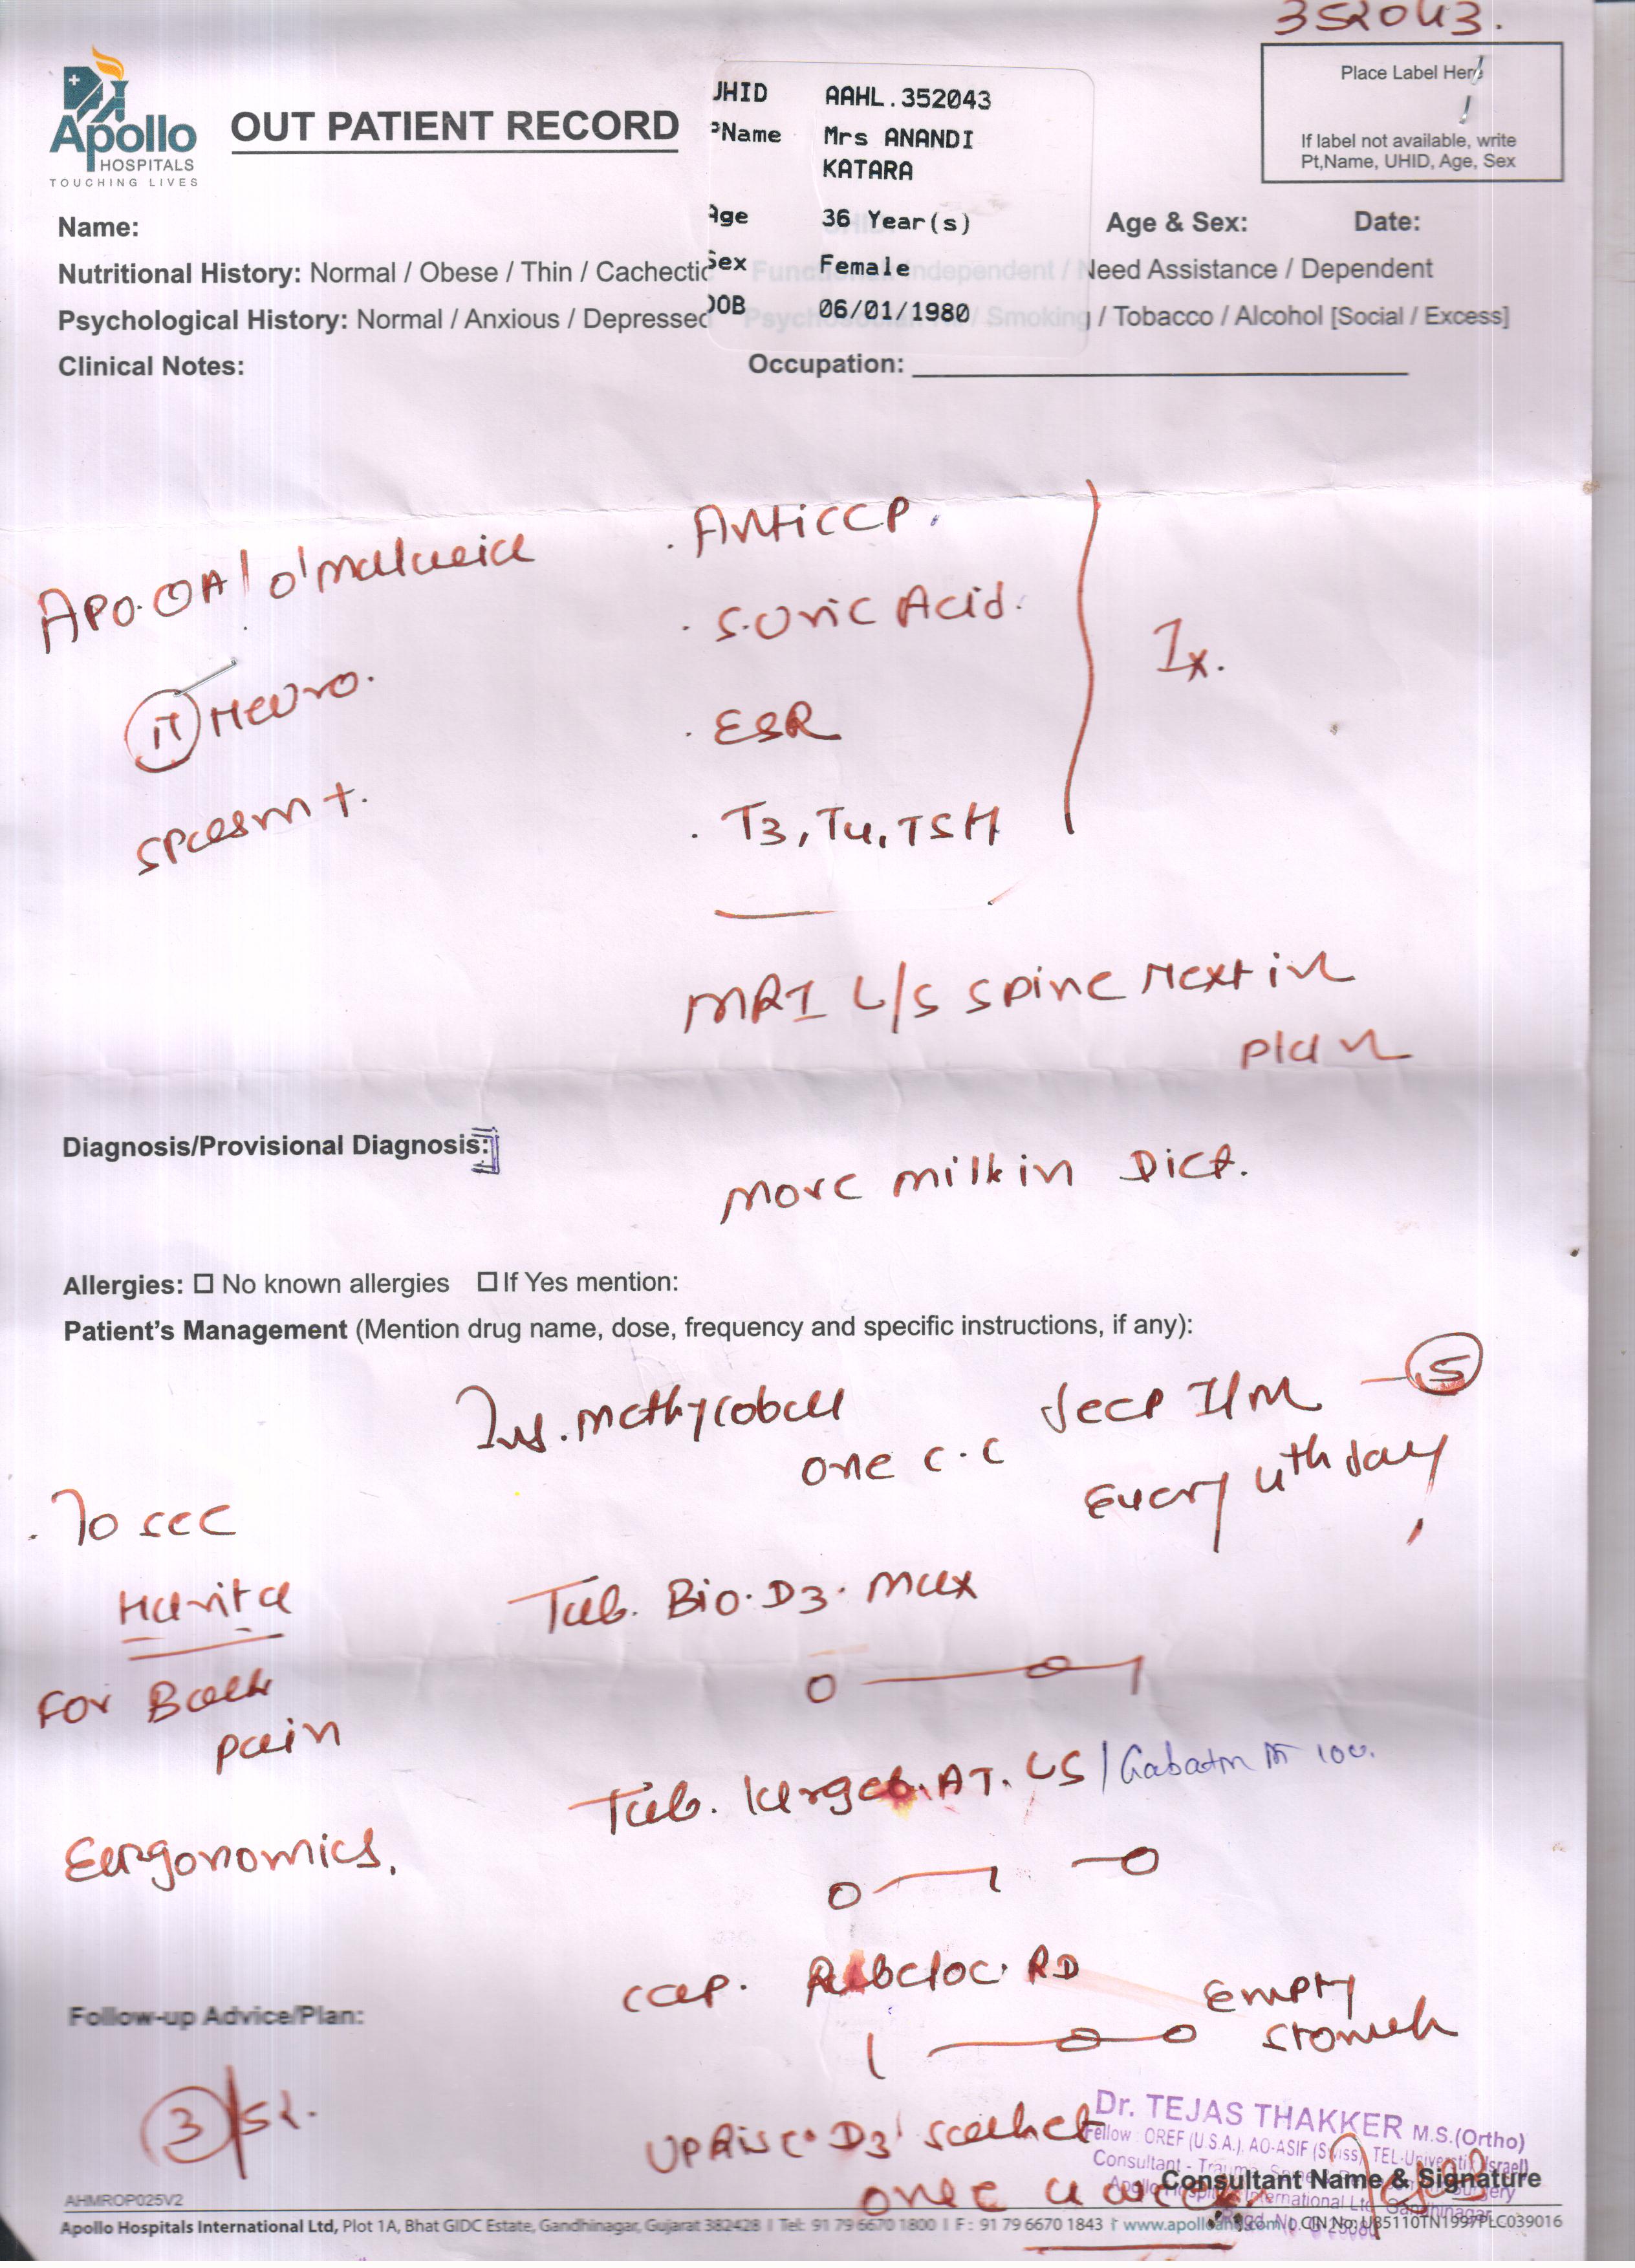 352043.
Place Label Here
If label not available, write
Pt,Name, UHID, Age, Sex
Apollo
HOSPITALS
TOUCHING LIVES
OUT PATIENT RECORD
UHID AAHL.352043
PName Mrs ANANDI
KATARA
Age 36 Year(s)
Sex Female
DOB 06/01/1980
Name: Age & Sex: Date:
Nutritional History: Normal / Obese / Thin / Cachectic Independent / Need Assistance / Dependent
Psychological History: Normal / Anxious / Depressed Smoking / Tobacco / Alcohol [Social / Excess]
Clinical Notes: Occupation:
. Anticcp.
. S. Uric Acid.
. ESR
. T3, T4, TSH
Ix.
Neuro.
spasm +.
MRI L/S spine Next in
plan
Diagnosis/Provisional Diagnosis:
more milk in Diet.
Allergies: ☐ No known allergies ☐ If Yes mention:
Patient's Management (Mention drug name, dose, frequency and specific instructions, if any):
Inj. methycobal
one c.c
deep I/M – 5
Every 4th day
. To see
Harita
For Back
pain
Eurgonomics.
Tab. Bio. D3. max
0 — 0 — 1
0 — 1 — 0
cap. RD
1 — 0 — 0
Empty
stomach
Follow-up Advice/Plan:
UPRise D3 sachet
one a week
Dr. TEJAS THAKKER M.S.(Ortho)
Fellow : OREF (U.S.A.), AO-ASIF (Swiss), TEL-
Consultant - Trauma,
Consultant Name & Signature
AHMROP025V2
Apollo Hospitals International Ltd, Plot 1A, Bhat GIDC Estate, Gandhinagar, Gujarat 382428 I Tel: 91 79 6670 1800 I F : 91 79 6670 1843 I CIN No: U85110TN1997PLC039016